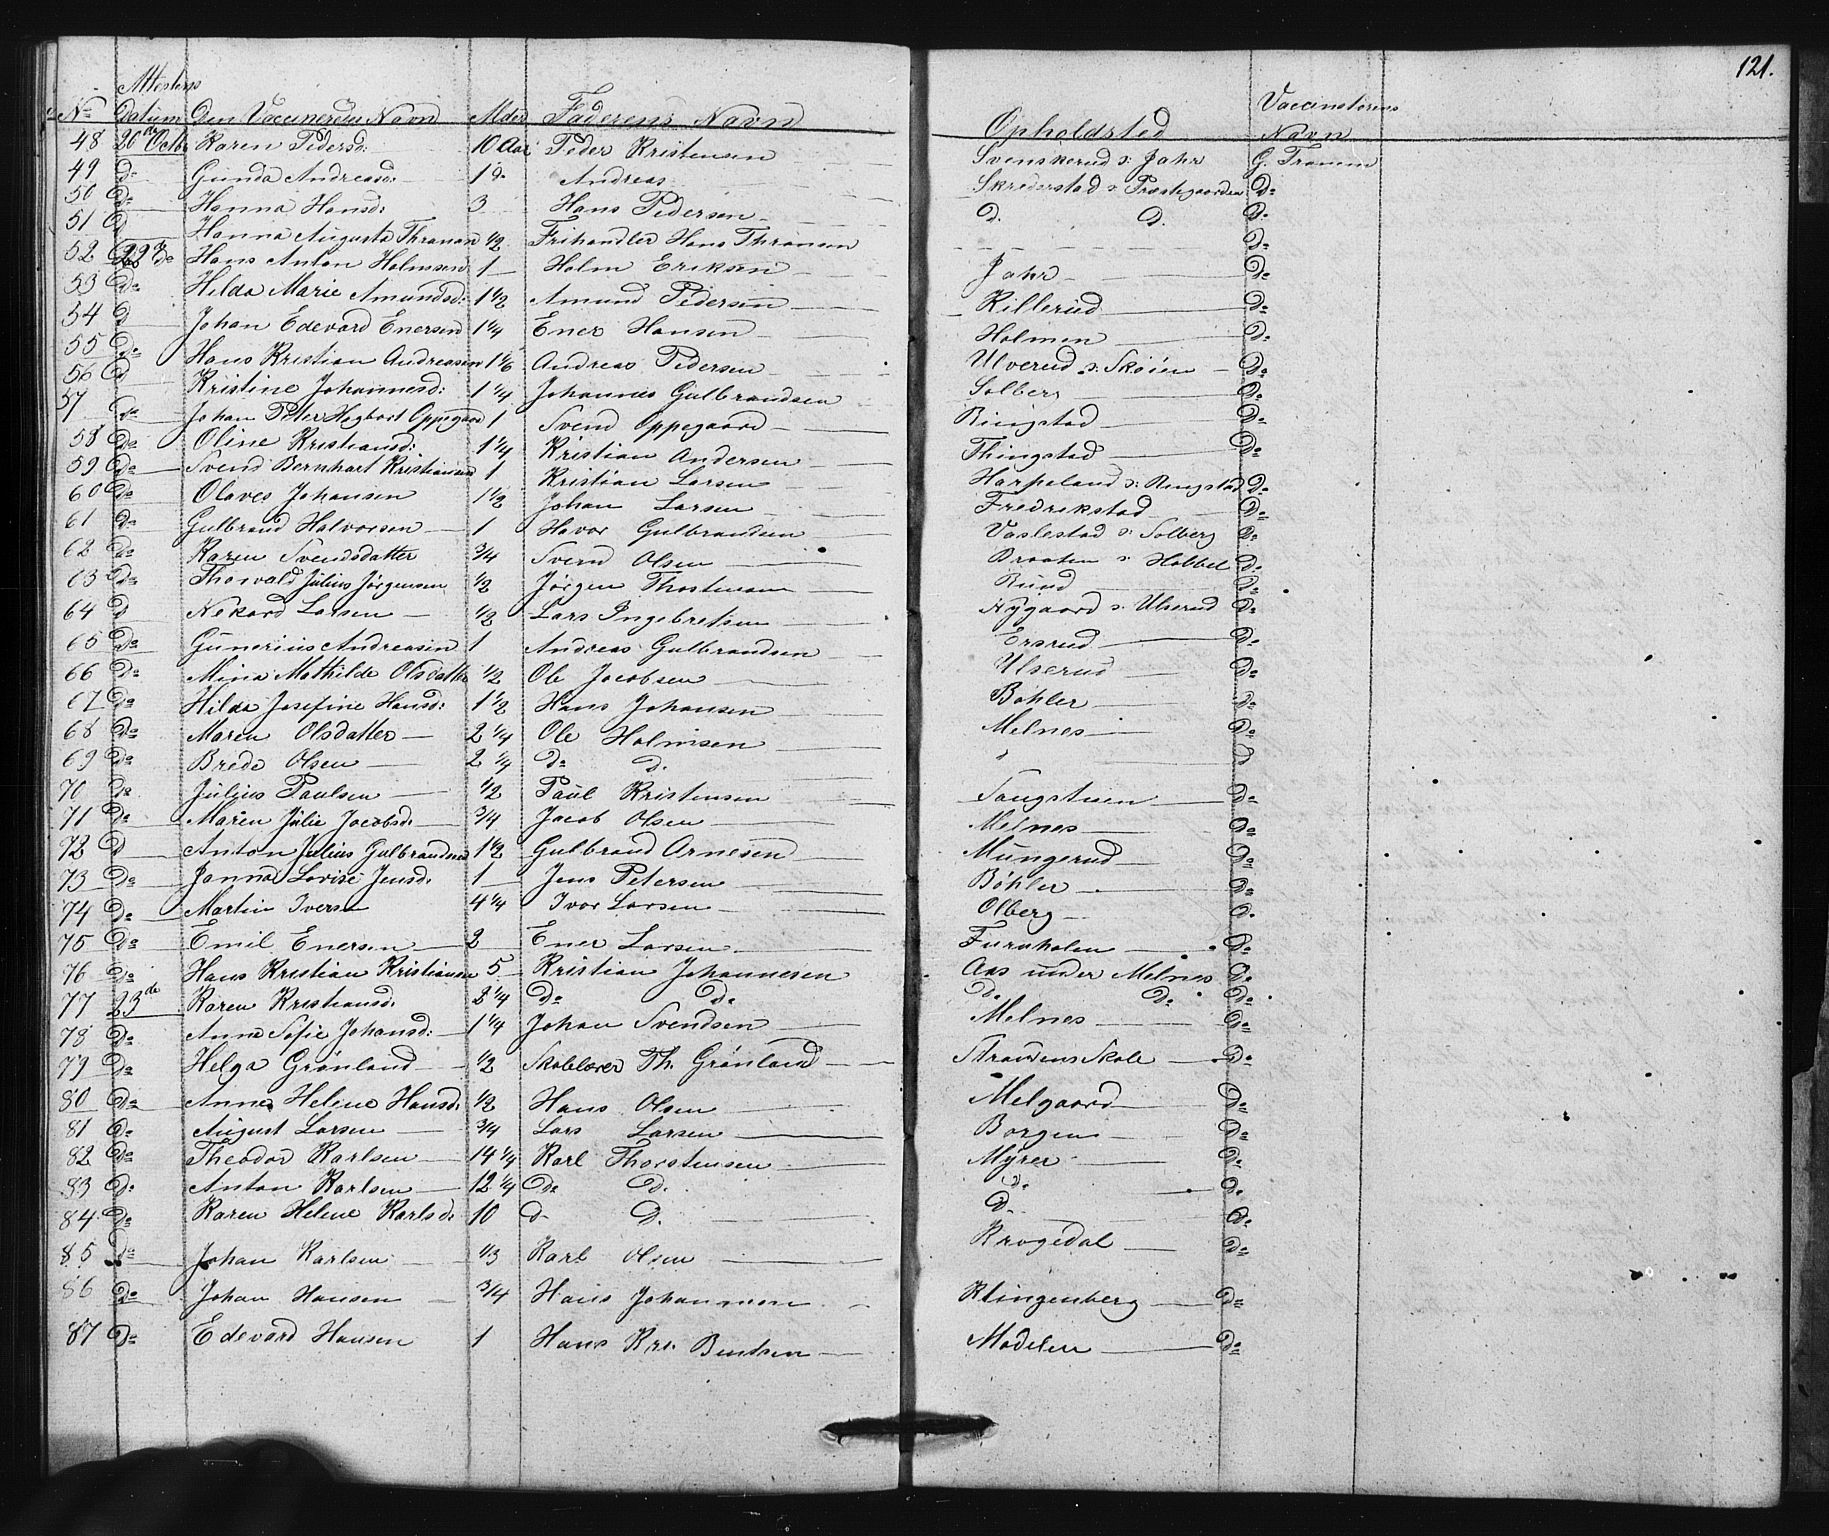 121.
Attestens Vaccinatørens
No Datum Den Vaccineredes Navn Alder Faderens Navn Opholdsted Navn
48 20de Octbr Karen Pedersd: 10 Aar Peder Kristensen Svenskerud s: Jahr G. Tronsen
49 do Gunda Andreasd: 1 do Andreas Skrederstad s: Præstegaarden Do
50 Do Hanna Hansd: 3 Hans Pedersen D. D. Do
51 D Hanna Augusta Thranæn 1/2 Frihandler Hans Thranæn Do
52 22de do Hans Anton Holmsen 1 Holm Eriksen Jahr Do
53 Do Hilda Marie Amundsd: 1 1/2 Amund Pedersen Killerud Do
54 D Johan Edevard Enersen 1 1/4 Ener Hansen Holmen Do
55 Do Hans Kristian Andreasen 1 1/6 Andreas Pedersen Ulverud s: Skøien Do
56 D Kristine Johannesd: 1 1/4 Johannes Gulbrandsen Solberg Do
57 Do Johan Peter Hegbart Oppegaard 1 Svend Oppegaard Ringstad Do
58 Do Oline Kristiansd: 1 1/4 Kristian Andersen Thingstad Do
59 Do Svend Bernhart Kristiansen 1 Kristian Larsen Harpeland s: Ringstad Do
60 Do Olaves Johansen 1 1/2 Johan Larsen Fredrikstad Do
61 Do Gulbrand Halvorsen 1 Havor Gulbrandsen Vaslestad s: Solberg Do
62 Do Karen Svendsdatter 3/4 Svend Olsen Braaten s: Hobbel Do
63 Do Thorvald Julius Jørgensen 1/2 Jørgen Thostensen Rund Do
64 D Nekard Larsen 1/2 Lars Ingebretsen Nygaard s: Ulserud Do
65 Do Gunerius Andreasen 1 Andreas Gulbrandsen Ersrud Do
66 Do Mina Mathilde Olsdatter 1/2 Ole Jacobsen Ulserud Do
67 Do Hilda Josefine Hansd: 1 1/2 Hans Johansen Bøhler Do
68 Do Maren Olsdatter 2 1/4 Ole Holmsen Melnes Do
69 Do Brede Olsen 2 1/4 Do D. d d
70 Do Julius Paulsen 1/2 Paul Kristensen Tangstuen Do
71 Do Maren Julie Jacobsd: 3/4 Jacob Olsen Melnes Do
72 D Anton Julius Gulbrandsen 1 1/2 Gulbrand Arnesen Mungerud Do
73 Do Janna Lovise Jensd: 1 Jens Petersen Bøhler Do
74 Do Martin Iversen 4 1/4 Ivor Larsen Olberg D.
75 Do Emil Enersen 2 Ener Larsen Furuholen Do
76 Do Hans Kristian Kristiansen 5 Kristian Johannesen Aas under Melnes Do
77 23de Karen Kristiansd: 2 1/4 Do Do D. Do Do
78 Do Anna Sofie Johansd: 1 1/4 Johan Svendsen Melnes Do
79 Do Helga Grønland 1/2 Skolelærer Th. Grønland Strandens Skole Do
80 Do Anne Helene Hansd: 1/2 Hans Olsen Melgaard Do
81 Do August Larsen 3/4 Lars Larsen Borgen Do
82 Do Theodor Karlsen 14 1/4 Karl Thorstensen Myrer Do
83 Do Anton Karlsen 12 1/4 Do D. Do Do
84 Do Karen Helene Karlsd: 10 d D. D. Do
85 Do Johan Karlsen 1/3 Karl Olsen Krogedal Do
86 Do Johan Hansen 3/4 Hans Johannesen Klingenberg Do
87 Do Edevard Hansen 1 Hans Kr: Bentsen Modelen Do